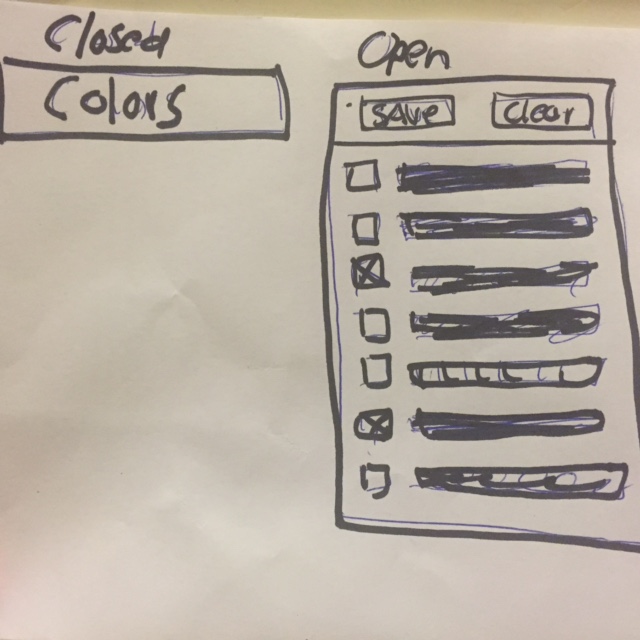 Closed
Colors
Open
SAVE
Clear